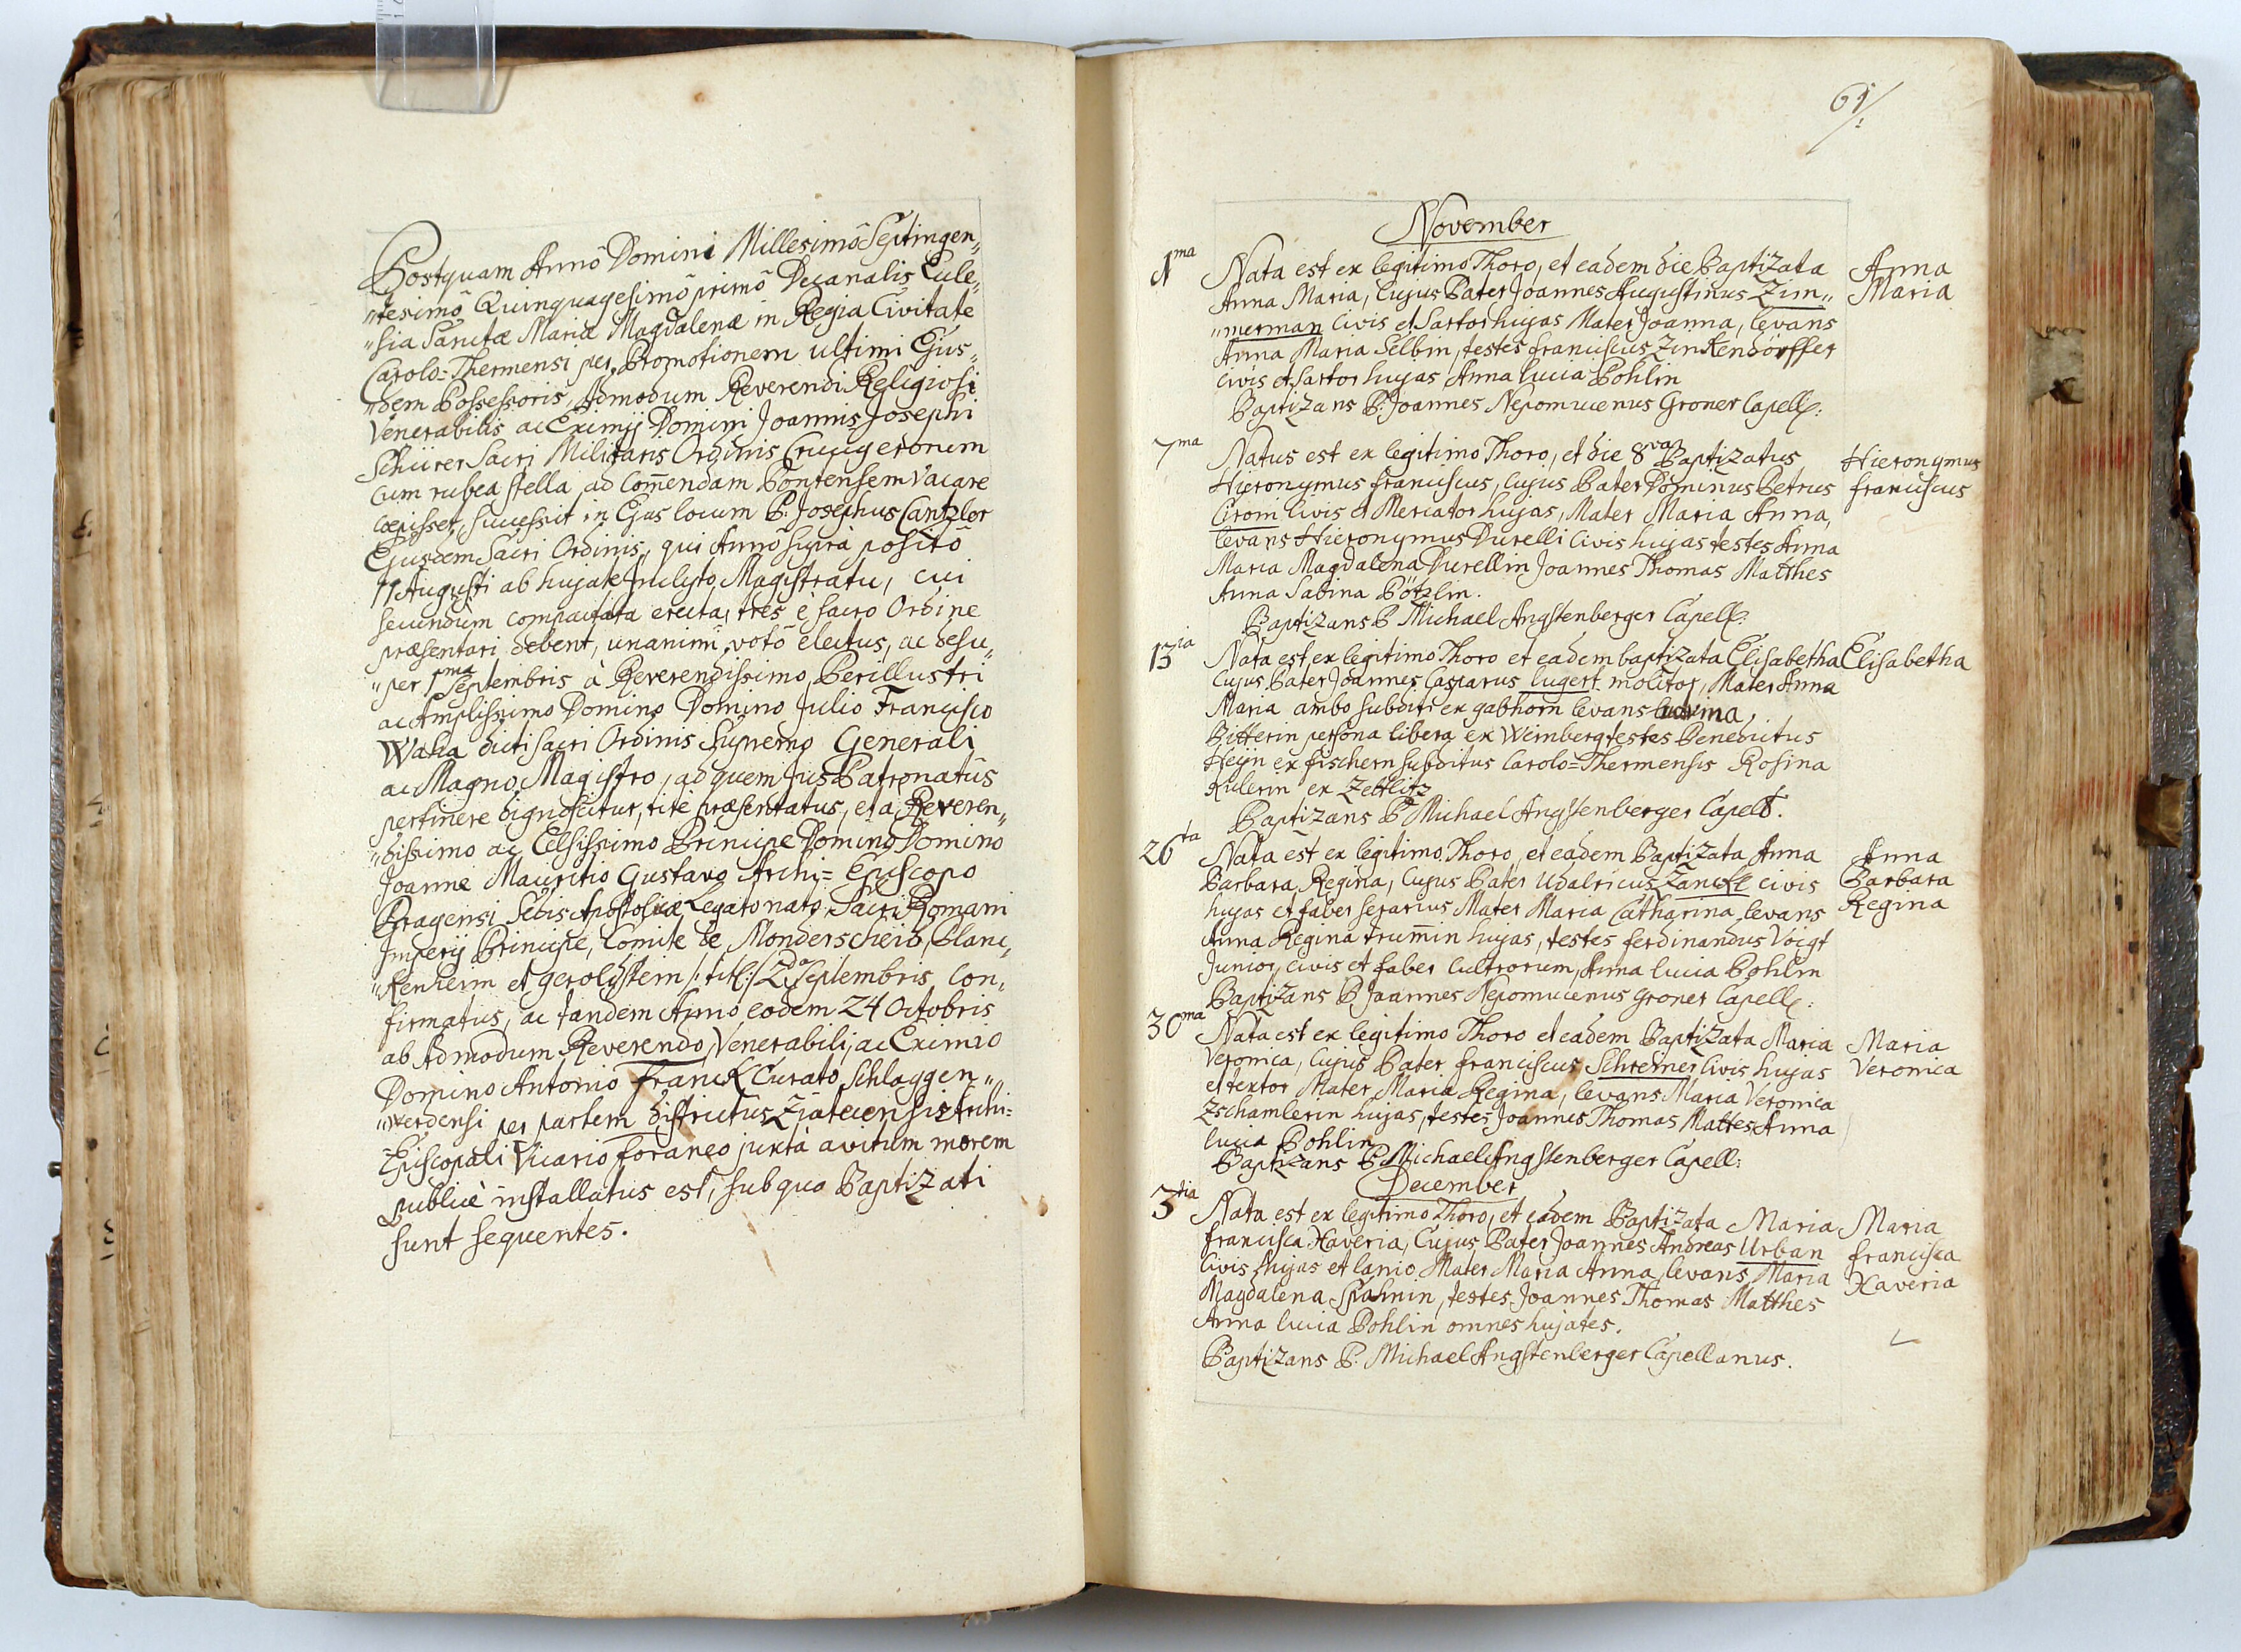 Postquam Annô Domini Millesimô Septingen„
„tesimô Quinquagesimô primô Decanalis Eccle„
„sia Sanctæ Mariæ Magdalenæ in Regia Civitate
Carolo=Thermensi per Promotionem ultimi Ejus„
„dem Possessoris, Admodum Reverendi Religiosi
Venerabilis ac Eximij Domini Joannis Josephi
Schürer Sacri Militaris Ordinis Crucigerorum
cum rubea stella ad Com̄endam Pontensem vacare
cœpisset, successit in Ejus locum P. Josephus Cantzler
Ejusdem Sacri Ordinis, qui Annô suprà positô
11 Augusti ab hujate Inclyto Magistratu, cui
secundùm compactata erecta, tres è sacro Ordine
præsentari debent, unanimi votô electus, ac desu„
„per 1ma Septembris à Reverendissimo, Perillustri
ac Amplissimo Domino Domino Julio Francisco
Waha dicti sacri Ordinis Supremo Generali
ac Magno Magistro, ad quem Jus Patronatûs
pertinere dignoscitur, ritè præsentatus, et à Reveren„
„dissimo ac Celsissimo Principe Domino Domino
Joanne Mauritio Gustavo Archi=Episcopo
Pragensi Sedis Apostolicæ Legato nato, Sacri Romani
Imperij Principe, Comite de Monderscheid, Blanc„
„kenheim et geroldstein /: titl: / 2da Septembris Con„
firmatus, ac tandem Annô eodem 24 Octobris
ab Admodum Reverendo, Venerabili, ac Eximio
Domino Antonio Franck Curato Schlaggen„
„werdensi per partem districtûs Zatecensis Archi=
Episcopali Vicario foraneo juxtà avitum morem
publicè installatus est, sub quo Baptizati
sunt sequentes.
61/:
November
1ma Nata est ex legitimo Thoro, et eadem die Baptizata Anna
Anna Maria, Cujus Pater Joannes Augustinus Zim„ Maria
„merman Civis et Sartor hujas Mater Joanna, levans
Anna Maria Selbin, testes franciscus Zinkendörffer
civis et Sartor hujas Anna lucia Pohlin
Baptizans P. Joannes Nepomucenus Groner Capell:
7ma Natus est ex legitimo Thoro, et die 8va Baptizatus Hieronymus
Hieronymus franciscus, Cujus Pater Dominus Petrus franciscus
Cirom Civis et Mercator hujas, Mater Maria Anna,
levans Hieronymus Durelli Civis hujas testes Anna
Maria Magdalena Durellin Joannes Thomas Matthes
Anna Sabina Pötzlin.
Baptizans P Michael Angstenberger Capell:
13ia Nata est ex legitimo Thoro et eadem baptizata Elisabetha Elisabetha
Cujus Pater Joannes Casparus lugert molitor, Mater Anna
Maria ambo subditi ex gabhorn levans
Bitterin persona libera ex Weinberg testes Benedictus
Heyn ex fischern subditus Carolo=Thermensis Rosina
Kulerin ex Zettlitz
Baptizans P Michael Angstenberger Capell.
26ta Nata est ex legitimo Thoro, et eadem Baptizata Anna Anna
Barbara Regina, Cujus Pater Udalricus Zanckl civis Barbara
hujas et faber serarius Mater Maria Catharina, levans Regina
Anna Regina trum̄in hujas, testes ferdinandus Voigt
Junior, civis et faber cultrorum, Anna lucia Pohlin
Baptizans P Joannes Nepomucenus Groner Capell:
30ma Nata est ex legitimo Thoro et eadem Baptizata Maria Maria
Veronica, Cujus Pater franciscus Schreiner Civis hujas Veronica
et textor Mater Maria Regina, levans Maria Veronica
Zschamlerin hujas, testes Joannes Thomas Mattes Anna
lucia Pohlin
Baptizans P Michael Angstenberger Capell:
December
3tia Nata est ex legitimo Thoro, et eadem Baptizata Maria Maria
francisca Xaveria, Cujus Pater Joannes Andreas Urban francisca
Civis hujas et lanio Mater Maria Anna, levans Maria Xaveria
Magdalena Spahnin, testes Joannes Thomas Matthes
Anna lucia Pohlin omnes hujates.
Baptizans P. Michael Angstenberger Capellanus.